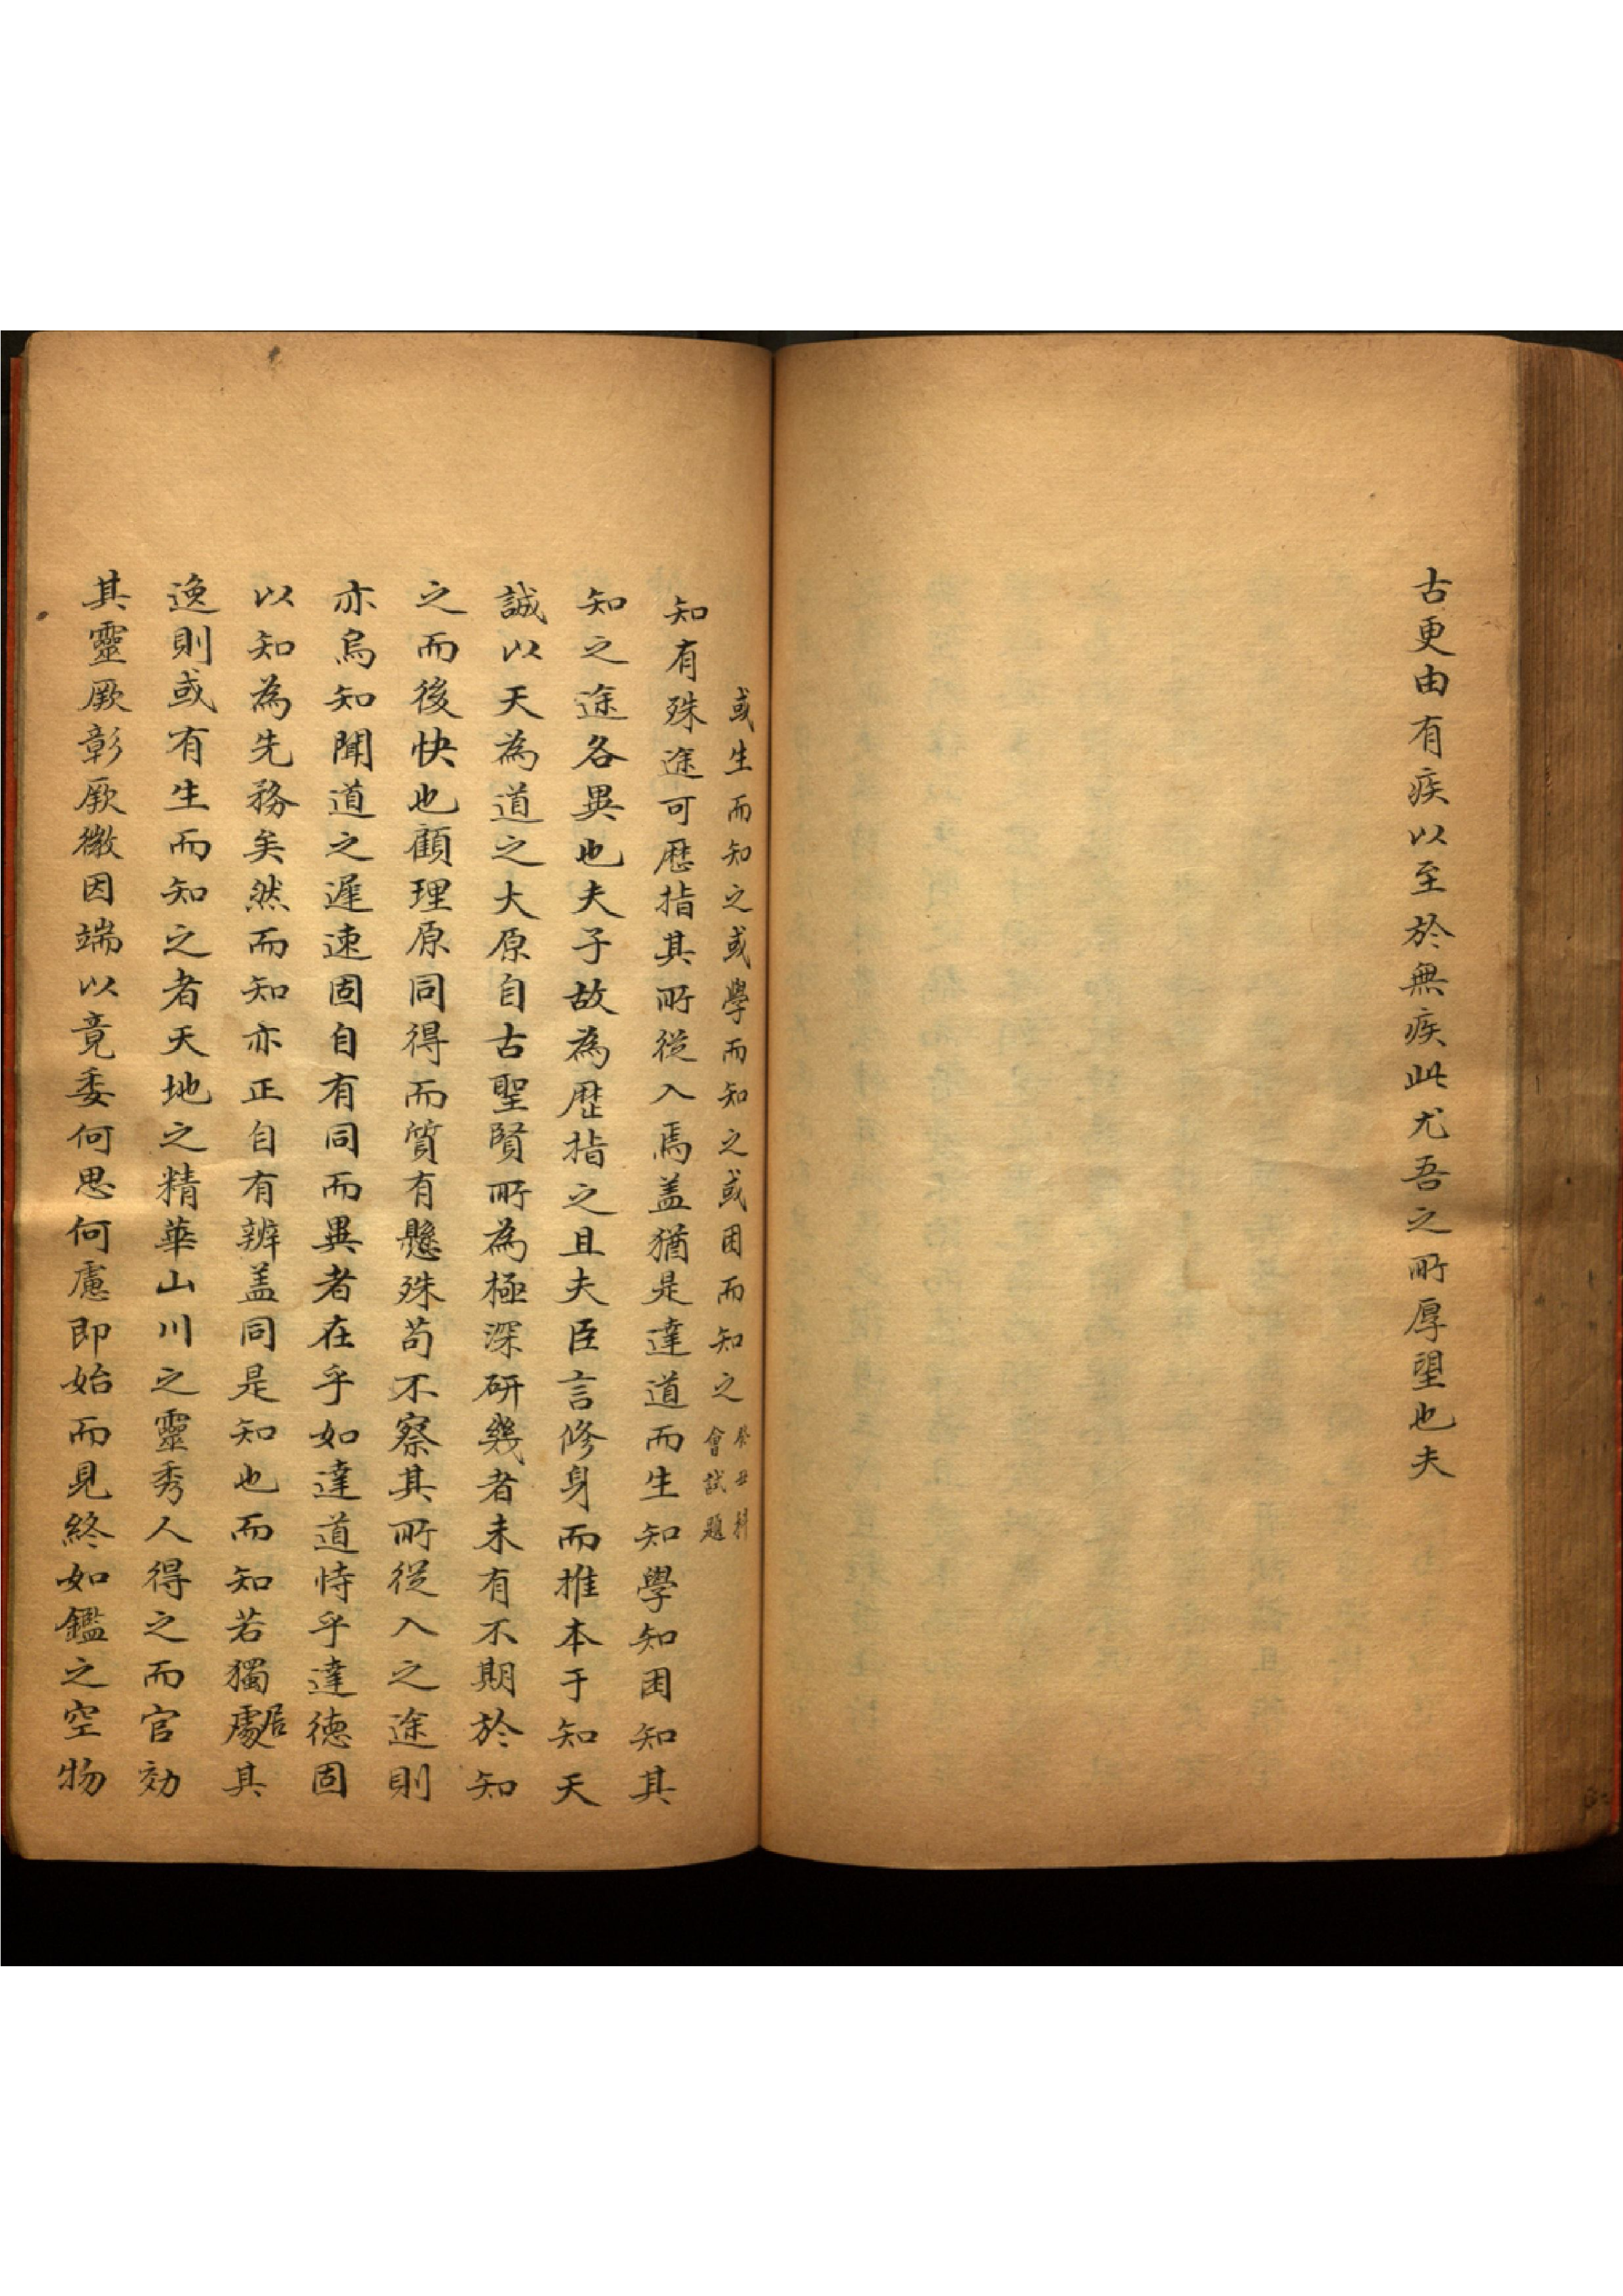 古更由有疾以至於無疾此尤吾之所厚望也夫
或生而知之或學而知之或困而知之
癸丑科
會試題
知有殊途可歷指其所從入焉盖猶是達道而生知學知困知其
知之途各異也夫子故為歷指之且夫臣言修身而推本于知天
誠以天為道之大原自古聖賢所為極深研幾者未有不期於知
之而後快也顧理原同得而質有懸殊苟不察其所從入之途則
亦烏知聞道之遲速固自有同而異者在乎如達道恃乎達德固
以知為先務矣然而知亦正自有辨盖同是知也而知若獨處居其
逸則或有生而知之者天地之精華山川之靈秀人得之而官効
其靈厥彰厥微因端以竟委何思何慮即始而見終如鑑之空物